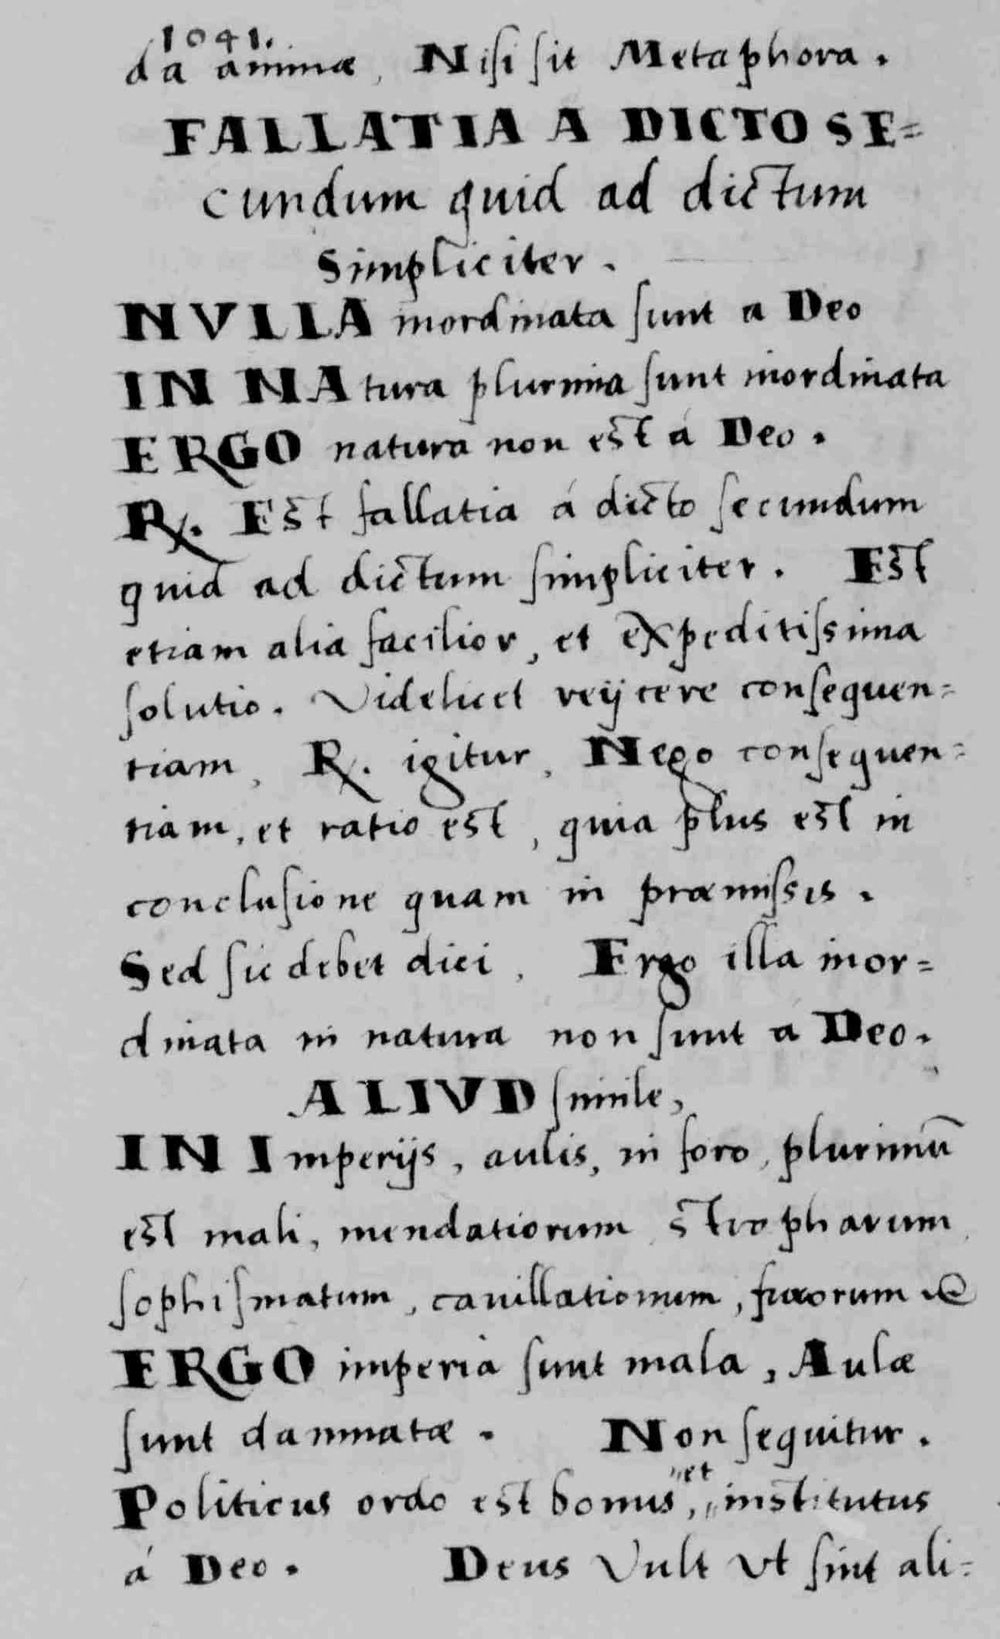 1041.
da animæ, Nisi sit Metaphora.
FALLATIA A DICTO SE=
cundum quid ad dictum
Simpliciter.
NVLLA inordinata sunt a Deo
IN NAtura plurima sunt inordinata
ERGO natura non est á Deo.
R. Est fallatia á dicto secundum
quid ad dictum simpliciter. Est
etiam alia facilior, et expeditissima
solutio. Videlicet reijcere consequen=
tiam, R. igitur, Nego consequen=
tiam, et ratio est, quia plus est in
conclusione quam in præmissis.
Sed sic debet dici, Ergo illa inor=
dinata in natura non sunt á Deo.
ALIVD simile,
IN Imperijs, aulis, in foro, plurimū
est mali, mendatiorum, stropharum,
sophismatum, cauillationum, fucorum &c
ERGO imperia sunt mala, Aulæ
sunt damnatæ. Non sequitur.
Politicus ordo est bonus, et institutus
á Deo. Deus Vult Vt sint ali=